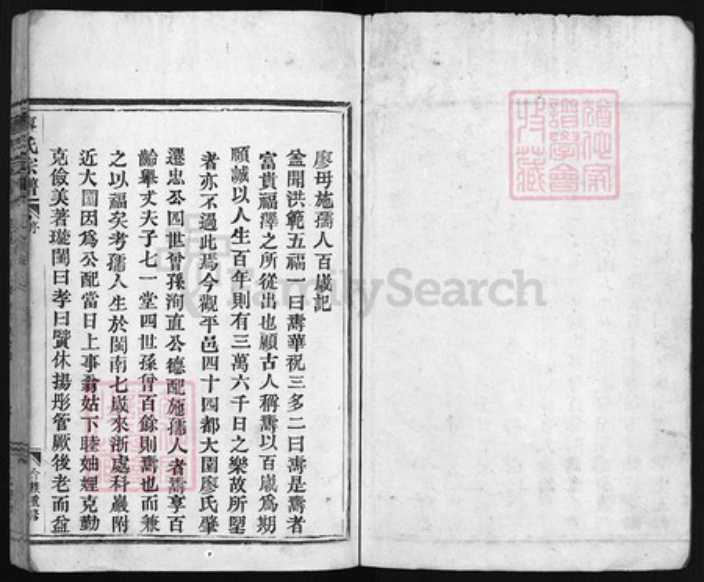 廖母施孺人百歲記
盖聞洪範五福一曰壽華祝三多二曰壽是壽者
富貴福澤之所從出也願古人稱壽以百歲爲期
願誠以人生百年則有三萬六千日之樂故所望
者亦不過此焉今觀平邑四十四都大園廖氏肇
遷忠公四世曾孫洵直公德配施孺人者壽享百
齡舉丈夫子七一堂四世孫曾百餘則壽也而兼
之以福矣考孺人生於閩南七歲來浙處科巖附
近大園因爲公配當日上事翁姑下睦妯娌克勤
克儉美著璇閨曰孝曰賢休揚彤管厥後老而益
氏宗譜
FamilySearch
譜學會
收藏